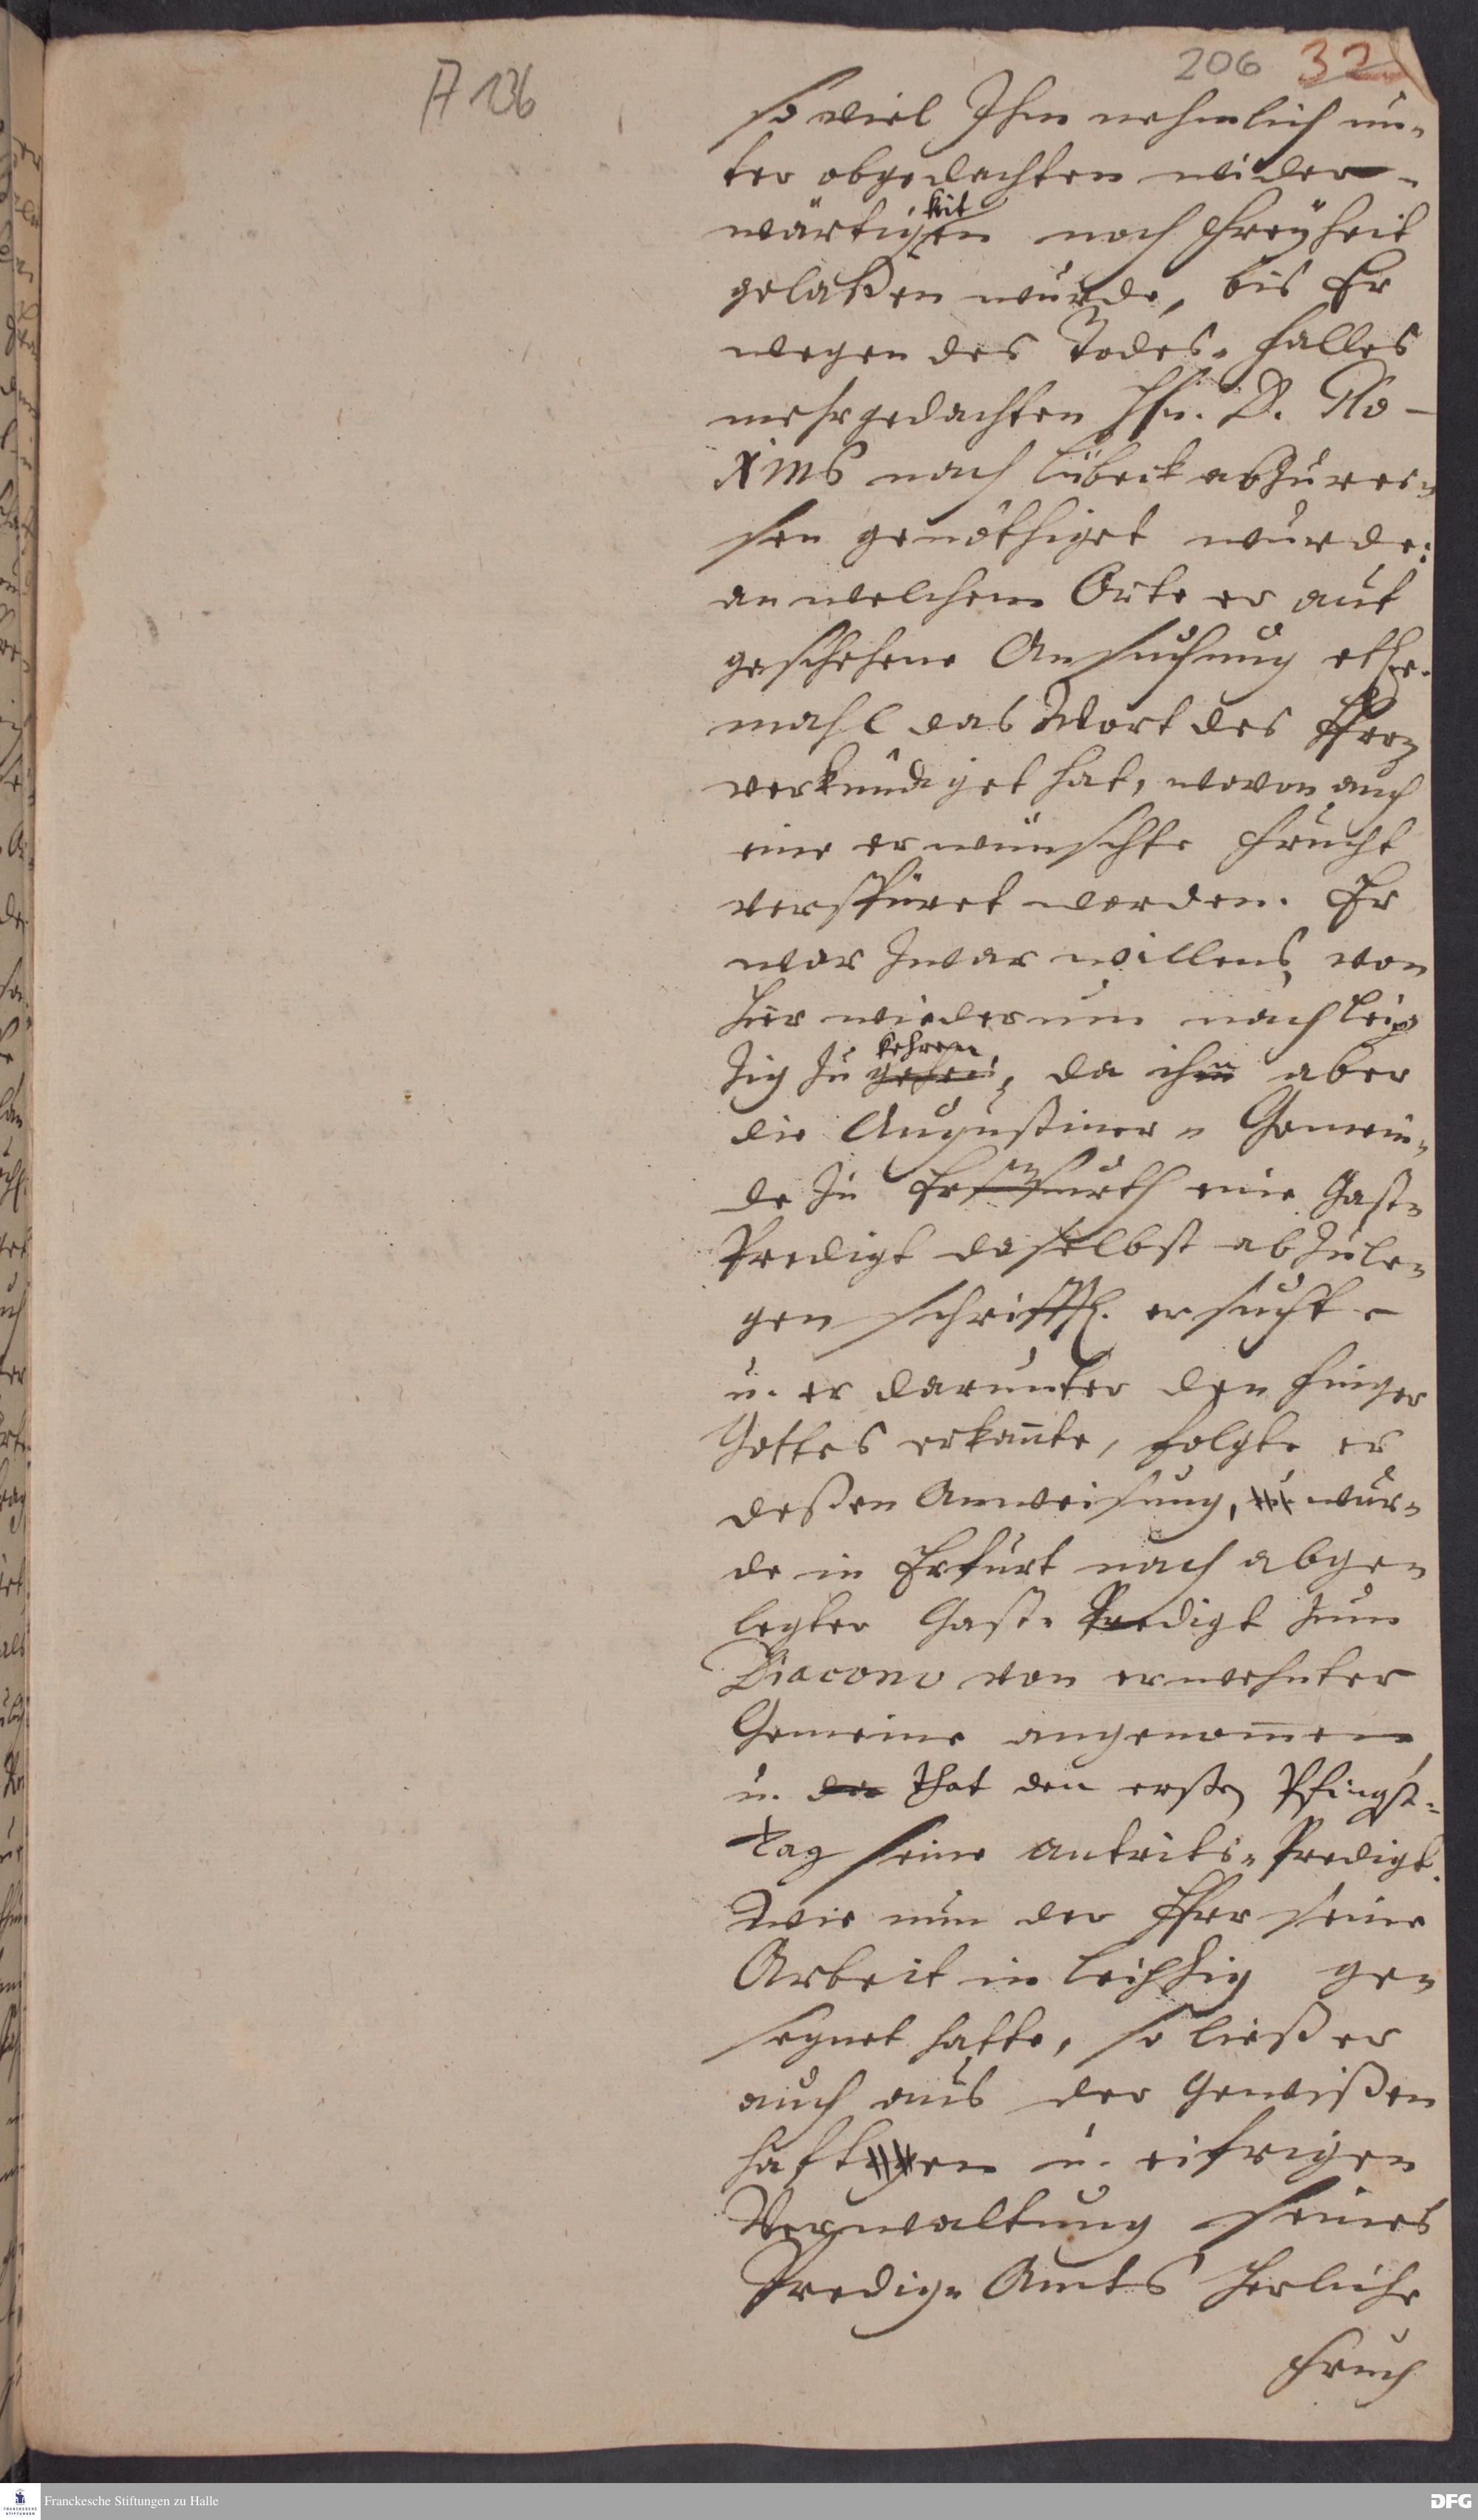 206 32
A 136
so viel Ihm nehmlich un-
ter obgedachten wider-
wärtigkeiten noch Freyheit
gelaßen wurde, bis Er
wegen des Todes-Falles
mehrgedachten Hn. D. Glo-
xins nach Lübeck abzurei-
sen genöthiget wurde:
an welchem Orte er auf
geschehene Ansuchung etl.
mahl das Wort des Herrn
verkündiget hat, wovon auch
eine erwünschte Frucht
verspüret worden. Er
war zwar willens von
hier wiederum nach Leip
zig zu kehren, da ihn aber
die Augustiner-Gemein-
de zu Erffurth eine Gast-
Predigt daselbst abzule-
gen schrifftl. ersuchte
u. er darunter den Finger
Gottes erkante, folgte er
deßen Anweisung, wur-
de in Erfurt nach abge-
legter Gast-Predigt zum
Diacono von erwehnter
Gemeine angenommen
u. that den ersten Pfingst-
tag seine Antrits-Predigt.
Wie nun der Herr seine
Arbeit in Leipzig ge-
segnet hatte, so ließ er
auch aus der Gewißen
hafften u. eifrigen
Verwaltung seines
Predig-Amts herliche
Fruch
Franckesche Stiftungen zu Halle
DFG